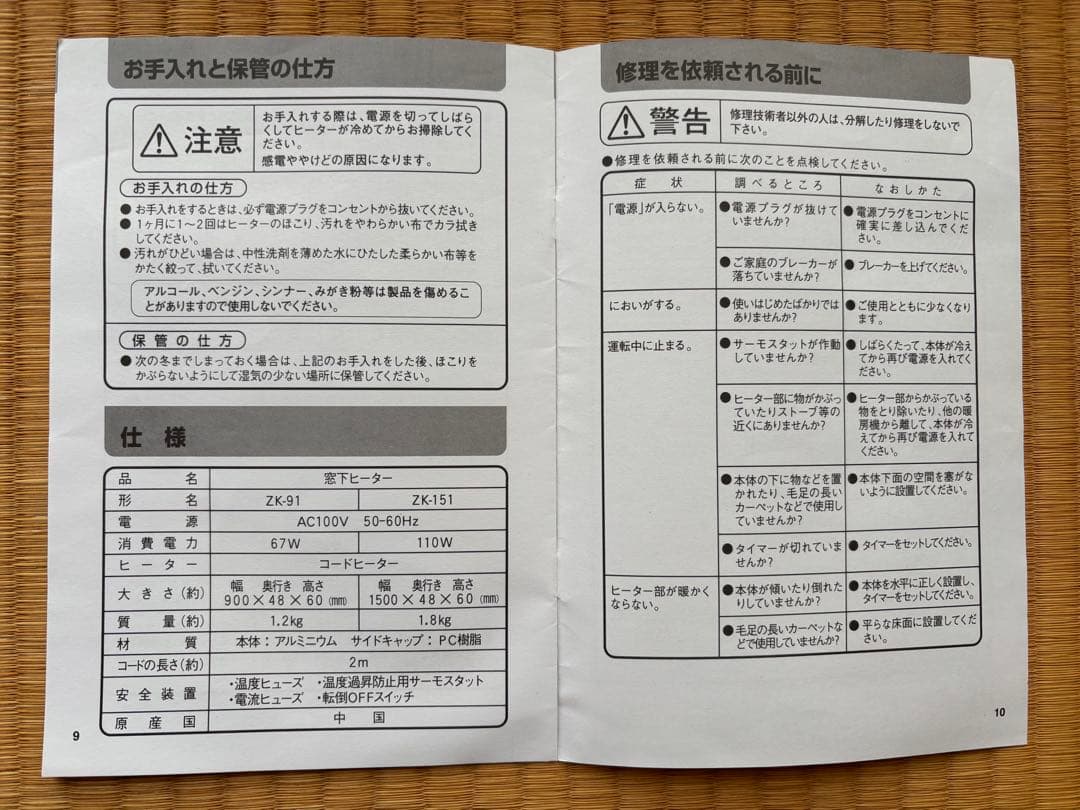 お手入れと保管の仕方
注意
お手入れする際は、電源を切ってしばら
くしてヒーターが冷めてからお掃除してく
ださい。
感電ややけどの原因になります。
お手入れの仕方
●お手入れをするときは、必ず電源プラグをコンセントから抜いてください。
●1ヶ月に1〜2回はヒーターのほこり、汚れをやわらかい布でカラ拭き
してください。
●汚れがひどい場合は、中性洗剤を薄めた水にひたした柔らかい布等を
かたく絞って、拭いてください。
アルコール、ベンジン、シンナー、みがき粉等は製品を傷めるこ
とがありますので使用しないでください。
保管の仕方
●次の冬までしまっておく場合は、上記のお手入れをした後、ほこりを
かぶらないようにして湿気の少ない場所に保管してください。
仕様
品名 窓下ヒーター
形名 ZK-91 ZK-151
電源 AC100V 50-60Hz
消費電力 67W 110W
ヒーター コードヒーター
大きさ(約) 幅 奥行き 高さ 幅 奥行き 高さ
900×48×60(mm) 1500×48×60(mm)
質量(約) 1.2kg 1.8kg
材質 本体:アルミニウム サイドキャップ:PC樹脂
コードの長さ(約) 2m
安全装置 ・温度ヒューズ ・温度過昇防止用サーモスタット
・電流ヒューズ ・転倒OFFスイッチ
原産国 中国
9
修理を依頼される前に
警告
修理技術者以外の人は、分解したり修理をしないで
下さい。
●修理を依頼される前に次のことを点検してください。
症状 調べるところ なおしかた
「電源」が入らない。
●電源プラグが抜けて
いませんか?
●電源プラグをコンセントに
確実に差し込んでくだ
さい。
●ご家庭のブレーカーが
落ちていませんか?
●ブレーカーを上げてください。
においがする。
●使いはじめたばかりでは
ありませんか?
●ご使用とともに少なくなり
ます。
運転中に止まる。
●サーモスタットが作動
していませんか?
●しばらくたって、本体が冷え
てから再び電源を入れてく
ださい。
●ヒーター部に物がかぶっ
ていたりストーブ等の
近くにありませんか?
●ヒーター部からかぶっている
物をとり除いたり、他の暖
房機から離して、本体が冷
えてから再び電源を入れて
ください。
●本体の下に物などを置
かれたり、毛足の長い
カーペットなどで使用し
ていませんか?
●本体下面の空間を塞がな
いように設置してください。
●タイマーが切れていま
せんか?
●タイマーをセットしてください。
ヒーター部が暖かく
ならない。
●本体が傾いたり倒れた
りしていませんか?
●本体を水平に正しく設置し、
タイマーをセットしてください。
●毛足の長いカーペットな
どで使用していませんか?
●平らな床面に設置してくだ
さい。
10